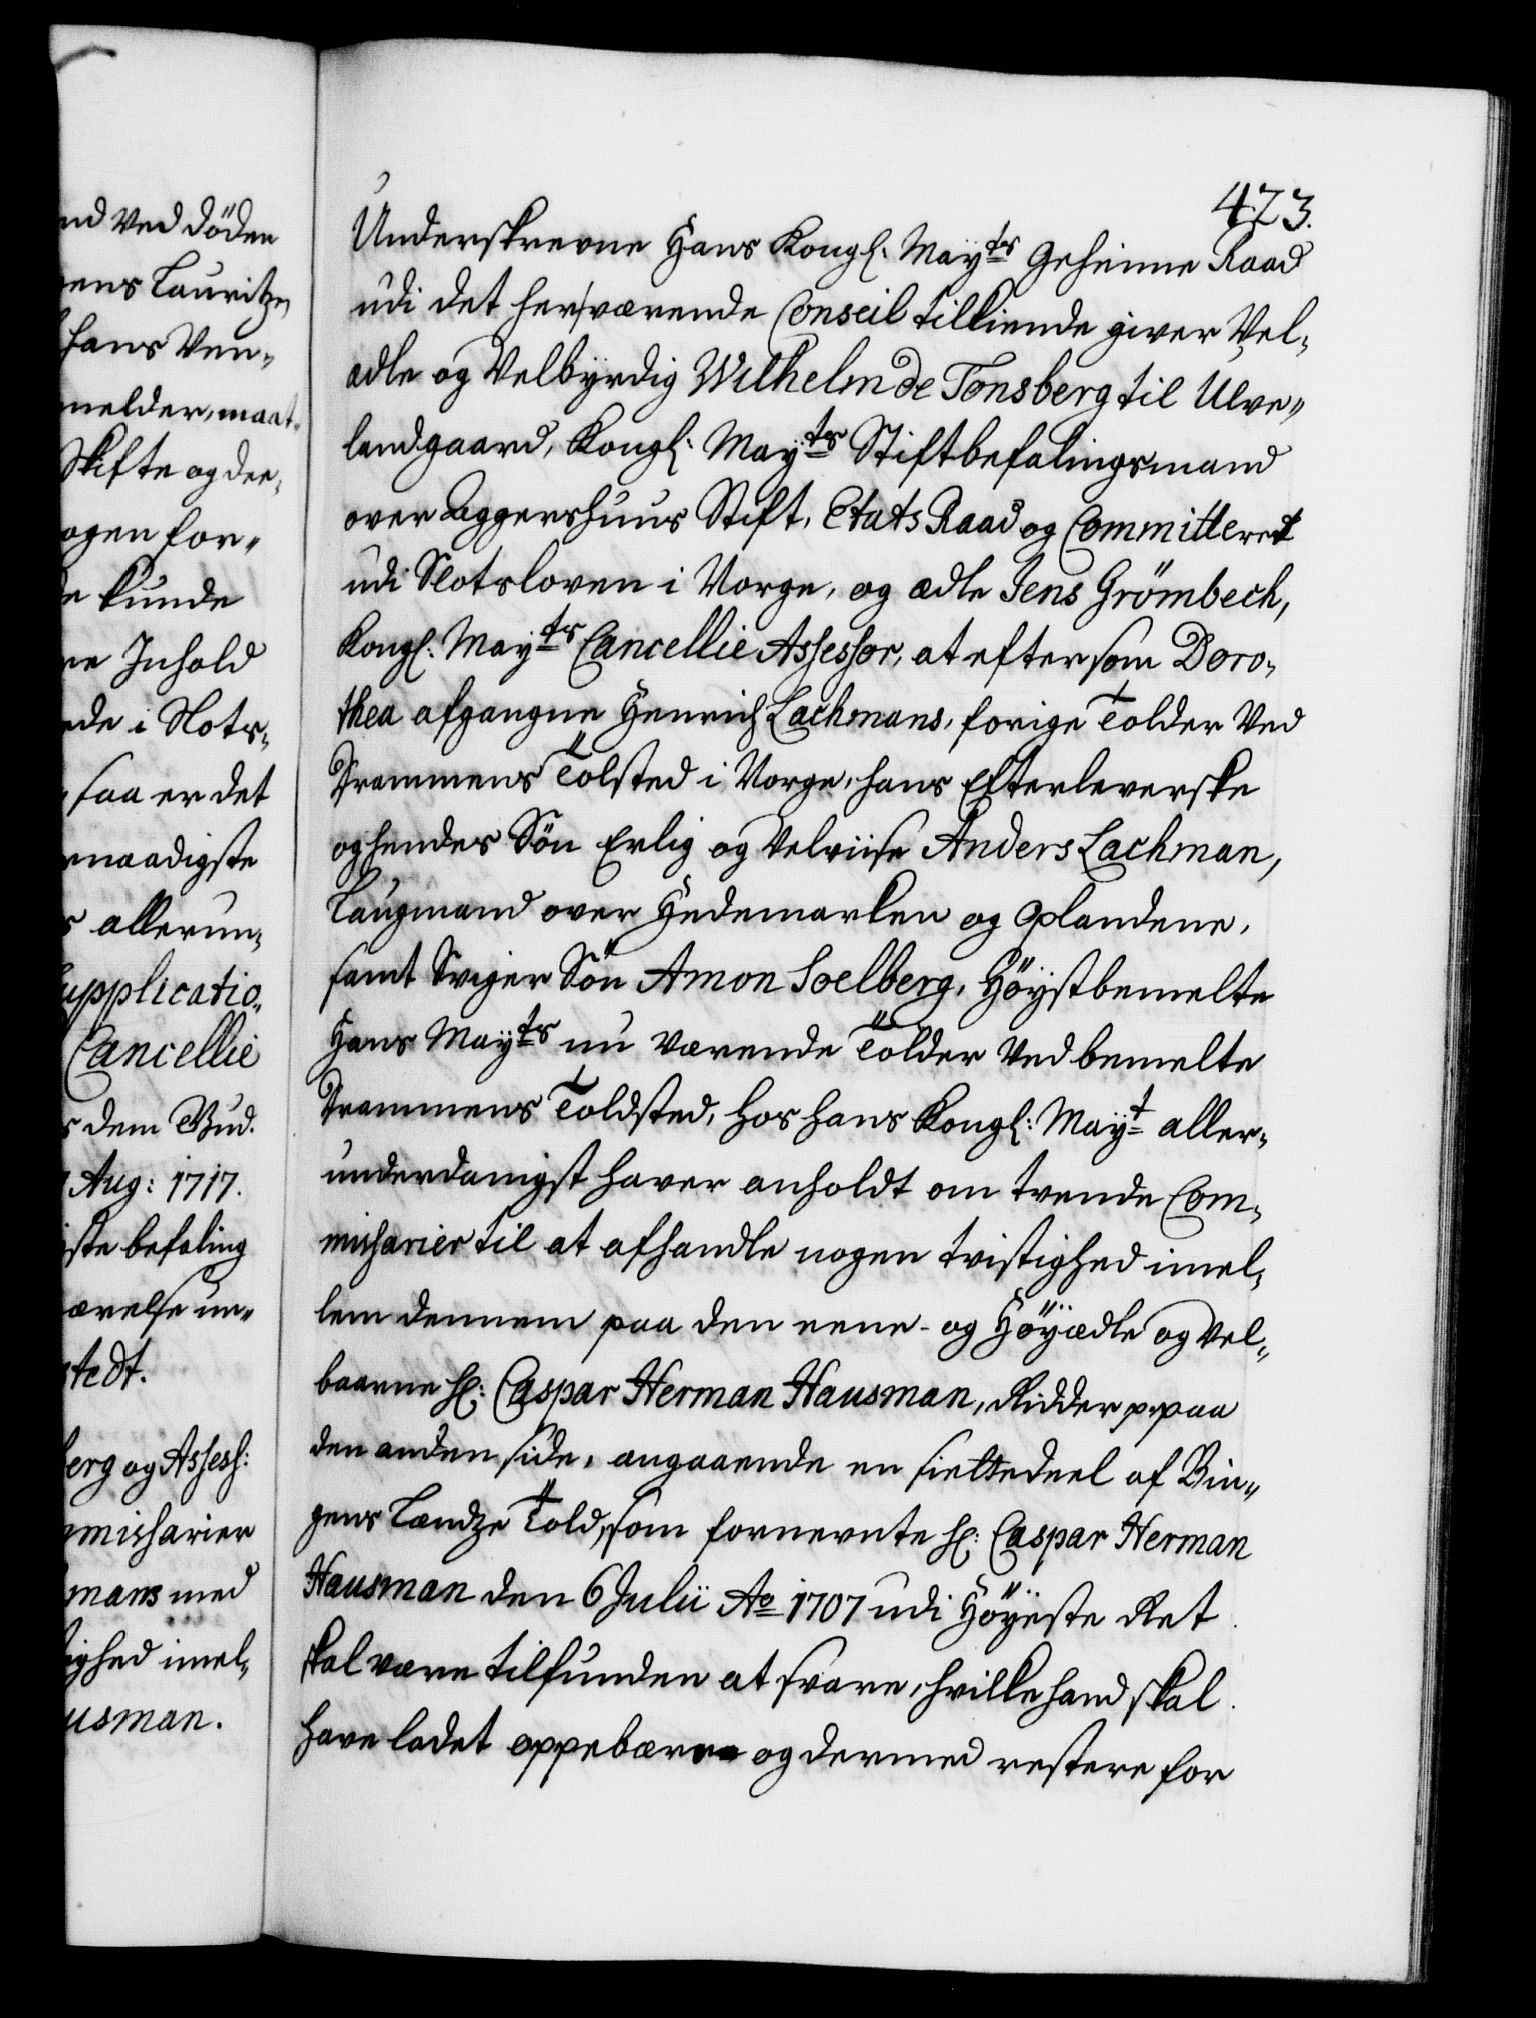 nd ved döden
ens Lauritzen
hans Ven-
melder, maat-
Skifte og dee-
ogen for-
e kunde
re Inhold
de i Slots-
saa er det
rnaadigste
s allerun-
upplicatio-
Cancellie
s dem Bud.
Aug: 1717.
ste befaling
ærelse un-
stedt.
berg og Assess:
mmissarier
mans med
ighed imel-
usman.
423.
Underskrevne Hans Kongl: Maÿts Geheime Raad
udi det her værende Conseil tilkiende giver Vel-
ædle og Velbÿrdig Wilhelm de Tonsberg til Ulve-
landgaard, Kongl: Maÿts Stiftbefalingsmand
over Aggershuus Stift, Etats Raad og Committeret
udi Slotsloven i Norge, og ædle Jens Grömbech,
Kongl: Maÿts Cancellie Assessor, at eftersom Doro-
thea afgangne Henrich Lachmans, forige Tolder ved
Drammens Tolsted i Norge, hans Efterleverske
og hendes Sön Erlig og Velviise Anders Lachman,
Laugmand over Hedemarken og Oplandene,
samt Sviger Sön Amon Soelberg, Höÿstbemelte
Hans Maÿts nu værende Tolder ved bemelte
Drammens Toldsted, hos hans Kongl: Maÿt aller-
underdanigst haver anholdt om tvende Com-
missarier til at afhandle nogen tvistighed imel-
lem dennem paa den eene- og Höÿædle og Vel-
baarne H: Caspar Herman Hausman, Ridder p. paa
den anden side, angaaende en siettedeel af Bin-
gens Lændze Told, som fornevnte H: Caspar Herman
Hausman den 6 Julii Ao 1707 udi Höÿeste Ret
skal være tilfunden at svare, hvilke hand skal
have ladet oppebære og dermed restere for